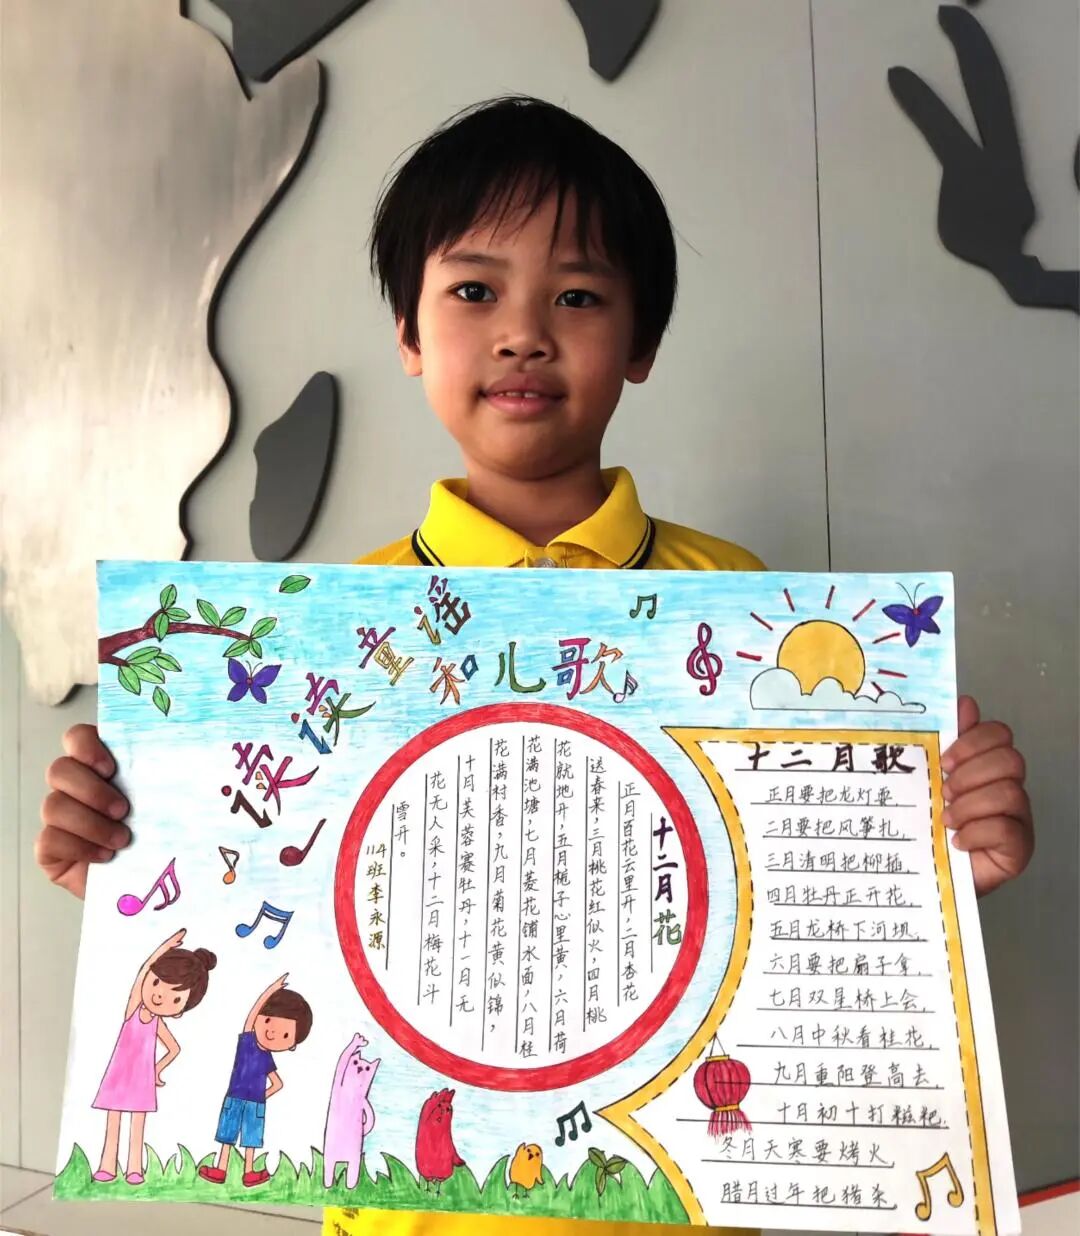 读读童谣
和儿歌
十二月花
正月百花云里开，二月杏花
送春来，三月桃花红似火，四月桃
花就地开，五月栀子心里黄，六月荷
花满池塘，七月菱花铺水面，八月桂
花满村香，九月菊花黄似锦，
十月芙蓉赛牡丹，十一月无
花无人采，十二月梅花斗
雪开。
114班李永源
十二月歌
正月要把龙灯耍，
二月要把风筝扎，
三月清明把柳插，
四月牡丹正开花，
五月龙桥下河坝，
六月要把扇子拿，
七月双星桥上会，
八月中秋看桂花，
九月重阳登高去，
十月初十打糍粑.
冬月天寒要烤火，
腊月过年把猪杀.